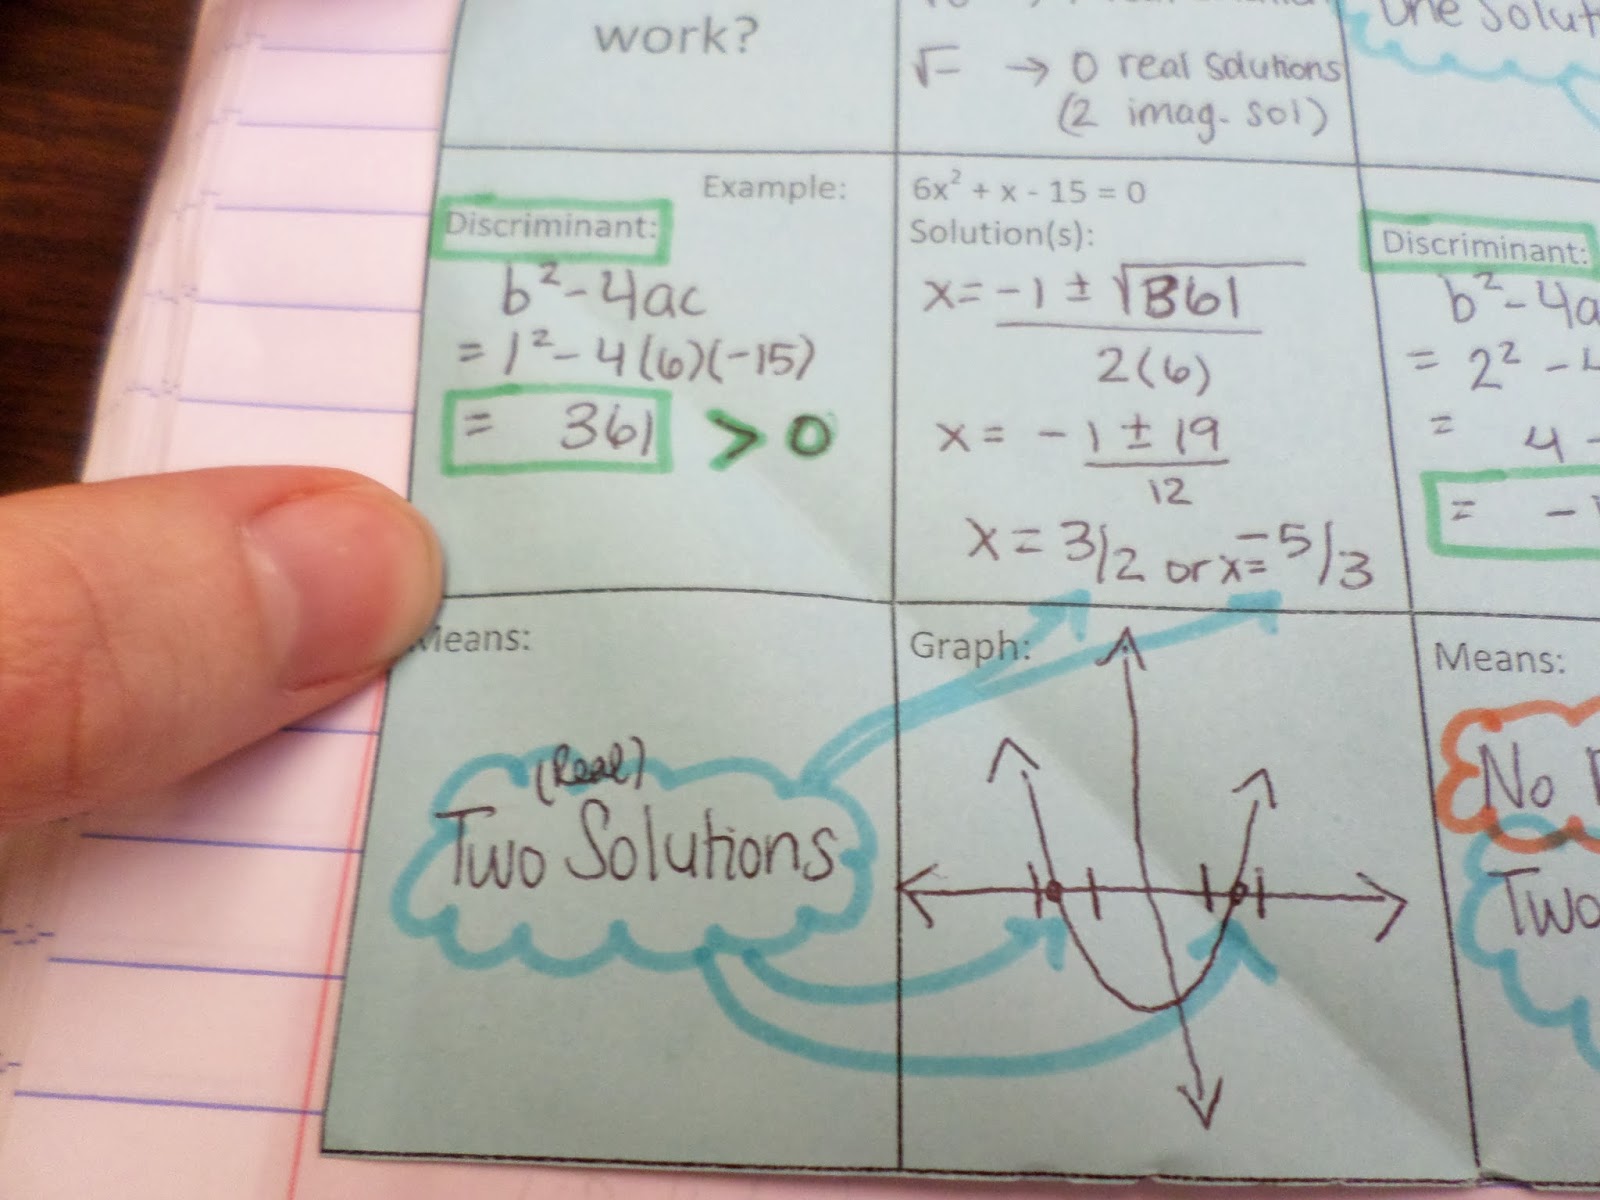 work?
√− → 0 real solutions
(2 imag. sol)
One Solut
Example:
Discriminant:
b² - 4ac
= 1² - 4(6)(-15)
= 361 > 0
6x² + x - 15 = 0
Solution(s):
x = -1 ± √361
2(6)
x = -1 ± 19
12
x = 3/2 or x = -5/3
Discriminant:
b² - 4a
= 2² -
= 4 -
= -
Means:
(Real)
Two Solutions
Graph:
Means:
No
Two